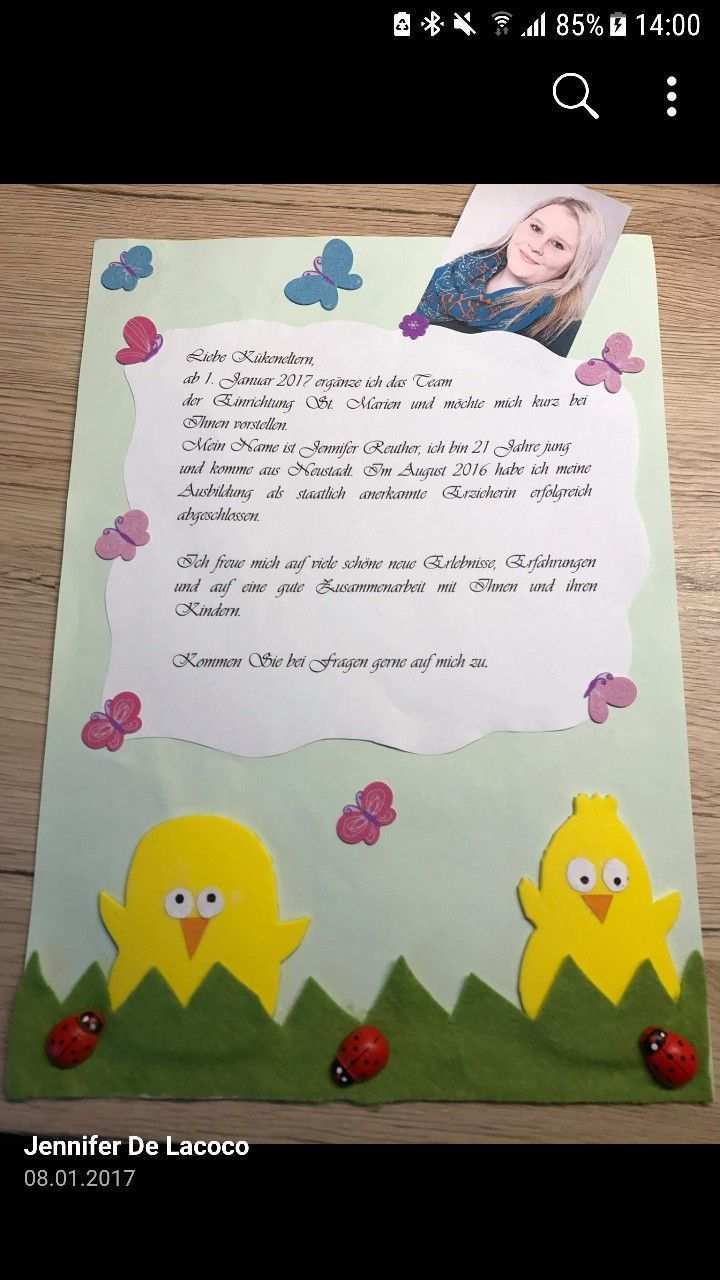 85% 14:00
Liebe Kükeneltern,
ab 1. Januar 2017 ergänze ich das Team
der Einrichtung St. Marien und möchte mich kurz bei
Ihnen vorstellen.
Mein Name ist Jennifer Reuther, ich bin 21 Jahre jung
und komme aus Neustadt. Im August 2016 habe ich meine
Ausbildung als staatlich anerkannte Erzieherin erfolgreich
abgeschlossen.
Ich freue mich auf viele schöne neue Erlebnisse, Erfahrungen
und auf eine gute Zusammenarbeit mit Ihnen und ihren
Kindern.
Kommen Sie bei Fragen gerne auf mich zu.
Jennifer De Lacoco
08.01.2017